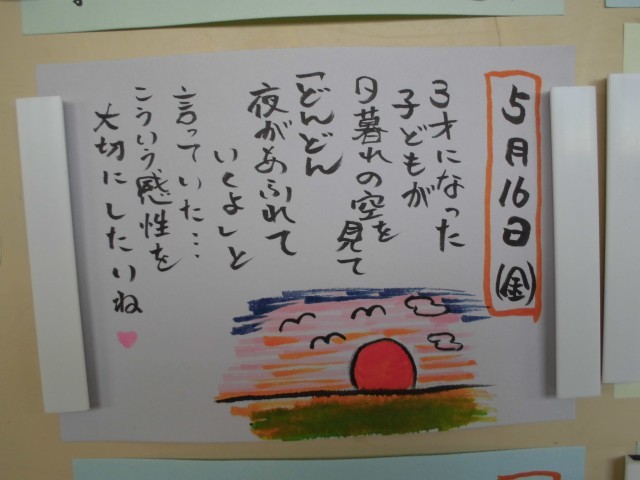 5月16日(金)
3才になった
子どもが
夕暮れの空を
見て
「どんどん
夜があふれて
いくよ」と
言っていた…
こういう感性を
大切にしたいね